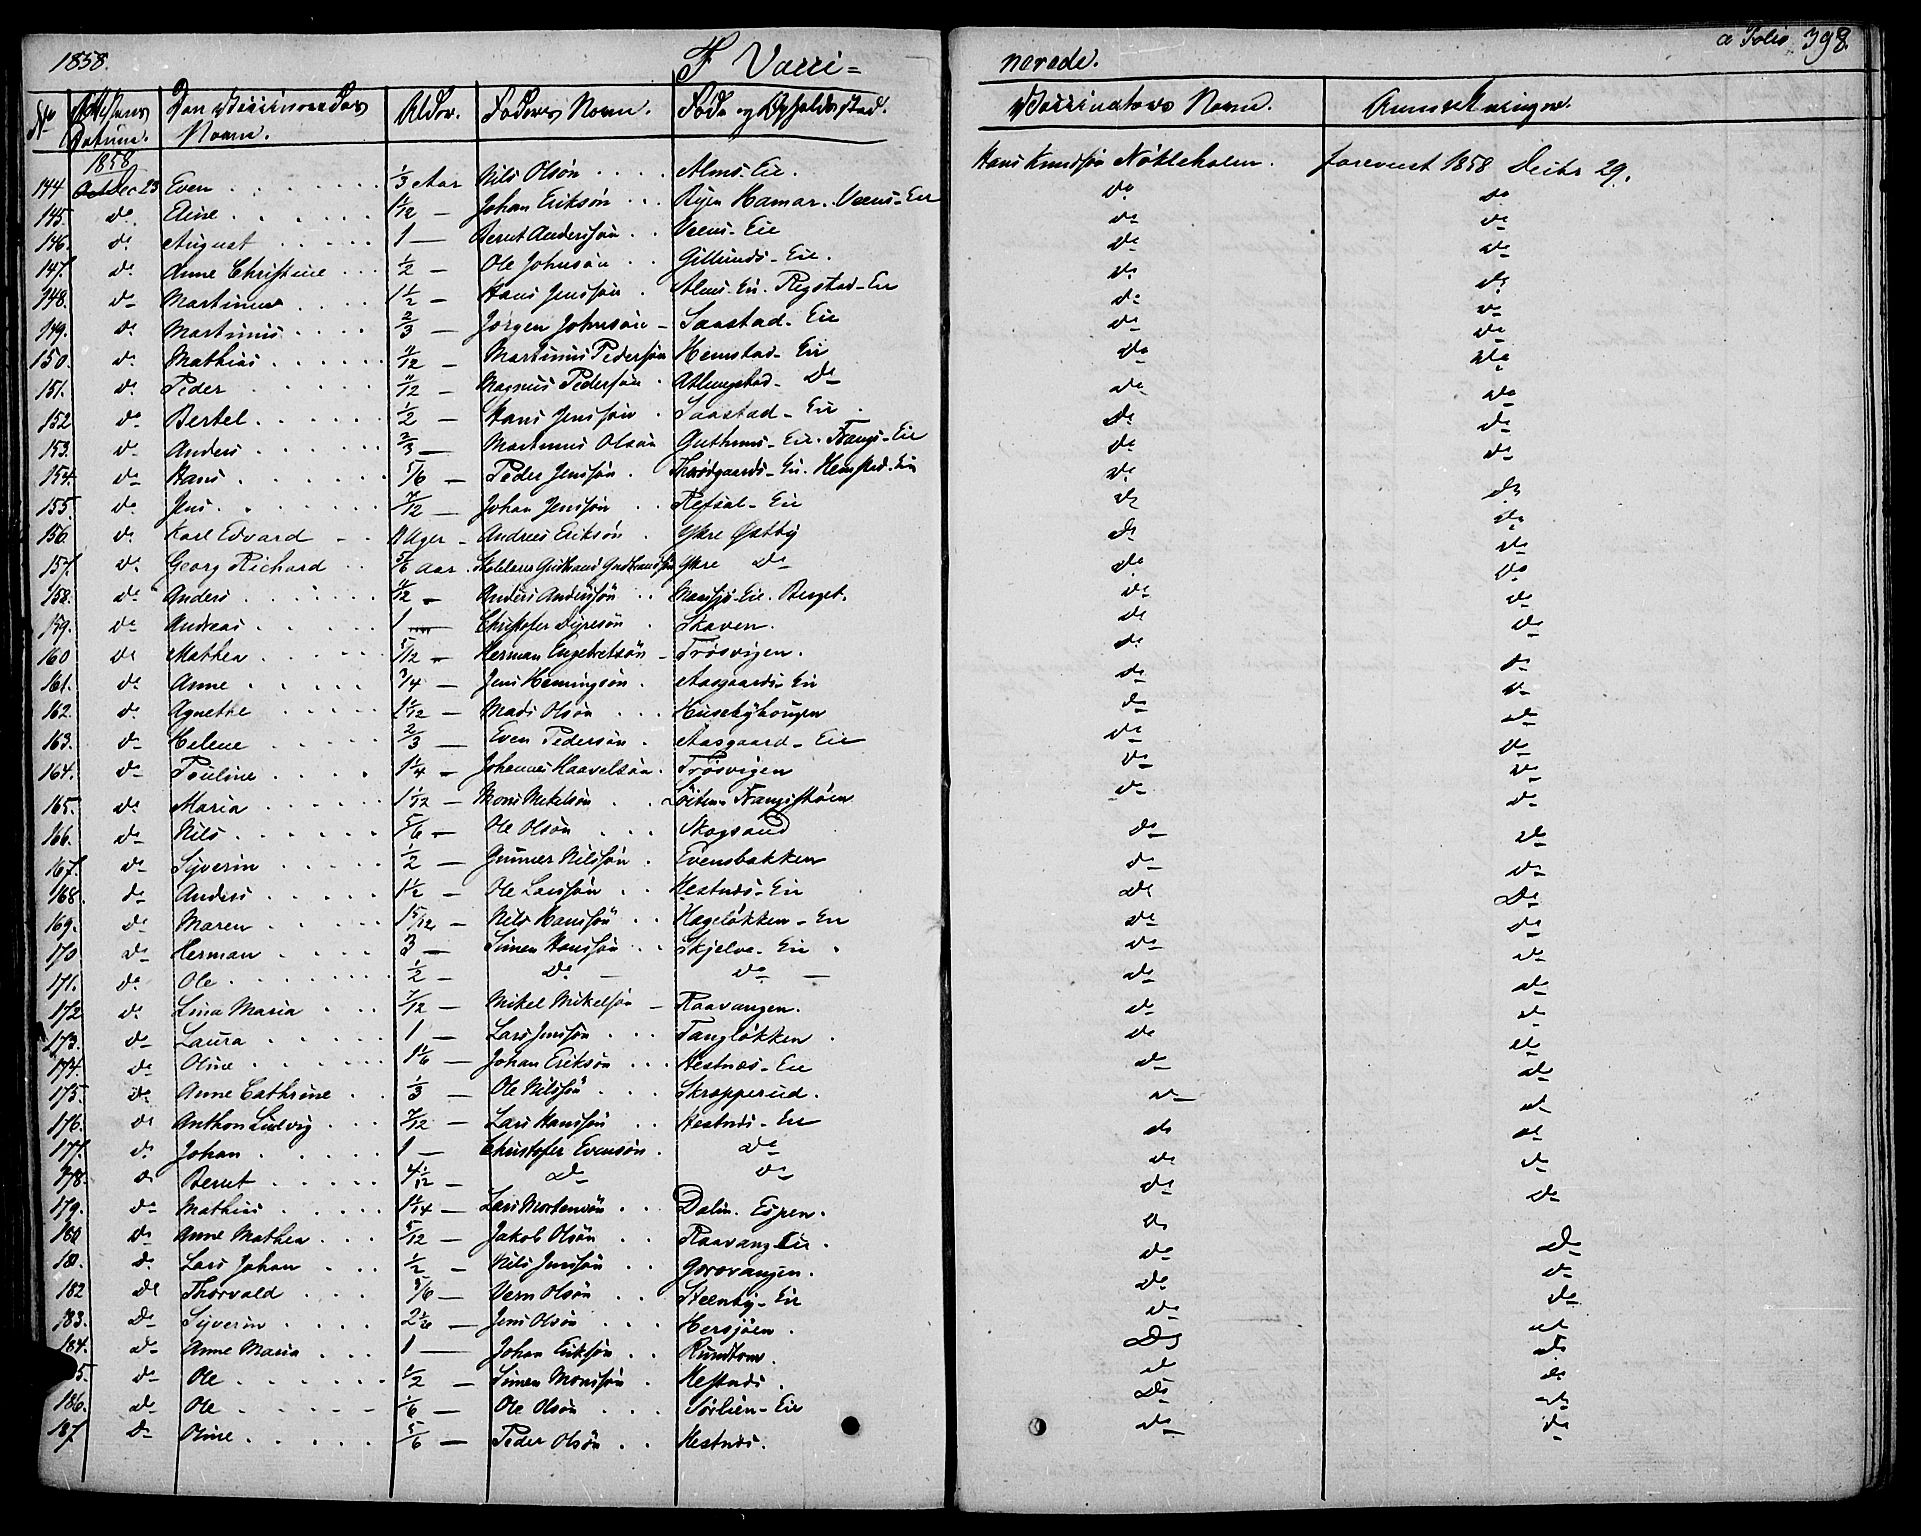 1858. F. Vacci= nerede. a Folio 398.
No Attestens Datum. Den Vaccineredes Navn. Alder. Faderens Navn. Føde og Opholdssted. Vaccinateurs Navn. Anmærkninger.
1858
144 Dec 23 Even 1/3 Aar Nils Olsøn Alms-Eie. Hans Knudsøn Nökleholm. forevist 1858 Decbr 29.
145 do Eline Johan Eriksøn Ryen Hamar. Veens-Eie do do
146. do August 1 — Bernt Anderssøn Veens-Eie do do
147. do Anne Christine 1/2 — Ole Johnsøn Gillunds-Eie. do do
148. do Martinus 1 1/2 — Hans Jenssøn Alms-Eie. Regstad-Eie do do
149. do Martinus 2/3 — Jörgen Johnsøn Saastad-Eie do do
150. do Mathias 11/12 — Martinus Pedersøn Hemstad-Eie do do
151. do Peder 11/12 — Magnus Pedersøn Atlungstad-do do do
152 do Bertel 1/2 — Hans Jenssøn Saastad-Eie do do
153. do Anders 2/3 — Martinus Olsøn Guthuus-Eie. Frangs-Eie do do
154. do Hans 5/6 — Peder Jenssøn Thordgaards-Eie. Hemstad-Eie do do
155. do Jens Johan Jenssøn Refsal-Eie do do
156. do Karl Edvard Uger Andreas Eriksøn Yttre Østby do do
157. do Georg Richard Aar Gudbrand Gudbrandsøn Yttre do do do
158. do Anders Anders Anderssøn Berget. do do
159. do Andreas 1 — Christofer Dyresøn Skaven. do do
160 do Mathea 5/12 — Herman Engebretsøn Trösvigen. do do
161. do Anne 3/4 — Jens Hemingsøn Aasgaards-Eie do do
162. do Agnethe Mads Olsøn Husebyhougen do do
163. do Helene 2/3 — Even Pedersøn Aasgaard-Eie do do
164. do Pouline 1 1/4 — Johannes Haavelsøn Trösvigen do do
165. do Maria 1 1/12 — Mons Mikelsøn Löiten Frangsstöen do do
166. do Nils 5/6 — Ole Olsøn Skogsaud do do
167. do Syverin 1/2 — Gunner Nilssøn Evensbakken do do
168. do Anders 1 1/2 — Ole Larssøn Hestnæs-Eie do do
169. do Maren 1 5/12 — Nils Hanssøn Hagelökken-Eie do do
170. do Herman 3 — Simen Hanssøn Skjelve-Eie do do
171. do Ole 1/2 — do do do do
172 do Lina Maria 7/12 — Mikel Mikelsøn Raavangen. do do
173. do Laura 1 — Lars Jenssøn Tanglökken do do
174. do Oline 1 1/6 — Johan Eriksøn Hestnæs-Eie do do
175. do Anne Cathrine 1/3 — Ole Nilssøn Skrapperud. do do
176. do Anthon Ludvig 7/12 — Lars Hanssøn Hestnæs-Eie do do
177. do Johan 1 — Christofer Evensøn do do do
178. do Bernt do do do do
179. do Mathias 1 1/4 — Lars Mortensøn Dalin. Espen. do do
180 do Anne Mathea 5/12 — Jakob Olsøn Raavang Eie. do do
181. do Lars Johan 1/2 — Nils Jenssøn Gorovangen. do do
182 do Thorvald 5/6 — Olsøn Steenby-Eie do do
183. do Syverin Jens Olsøn Hersjöen. do do
184. do Anne Maria 1 — Johan Eriksøn Rundtom. do do
5. do Ole 1/2 — Simen Monssøn Hestnæs. do do
186. do Ole 1/6 — Ole Olsøn Sörlien-Eie do do
187 do Oline 5/6 — Peder Olsøn Hestnæs. do do